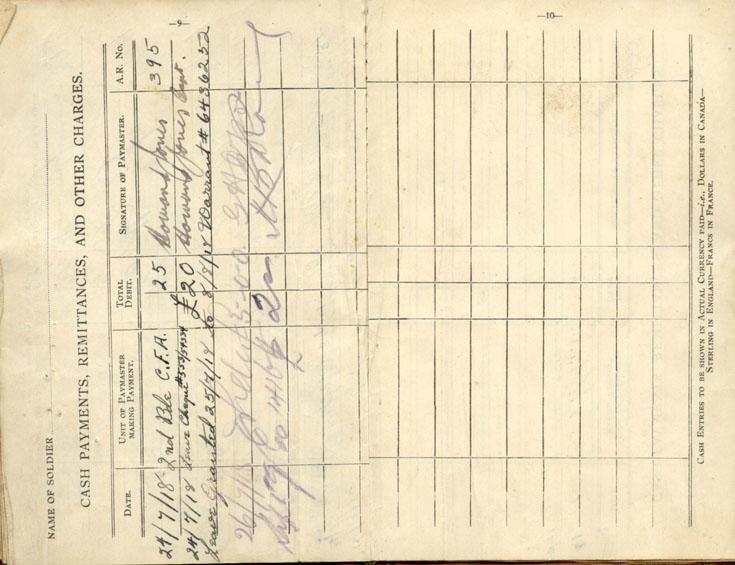 —9—
NAME OF SOLDIER
CASH PAYMENTS, REMITTANCES, AND OTHER CHARGES.
DATE. UNIT OF PAYMASTER MAKING PAYMENT. TOTAL DEBIT. SIGNATURE OF PAYMASTER. A.R. NO.
24/7/18 2nd Bde C.F.A. 25 Howard Jones 395
24/7/18 Leave Cheque £20 Howard Jones Capt.
Leave Granted 25/7/18 to 8/8/18 Warrant # 6436252
26/7/18 5-0-0
2
—10—
CASH ENTRIES TO BE SHOWN IN ACTUAL CURRENCY PAID—i.e., DOLLARS IN CANADA—
STERLING IN ENGLAND—FRANCS IN FRANCE.